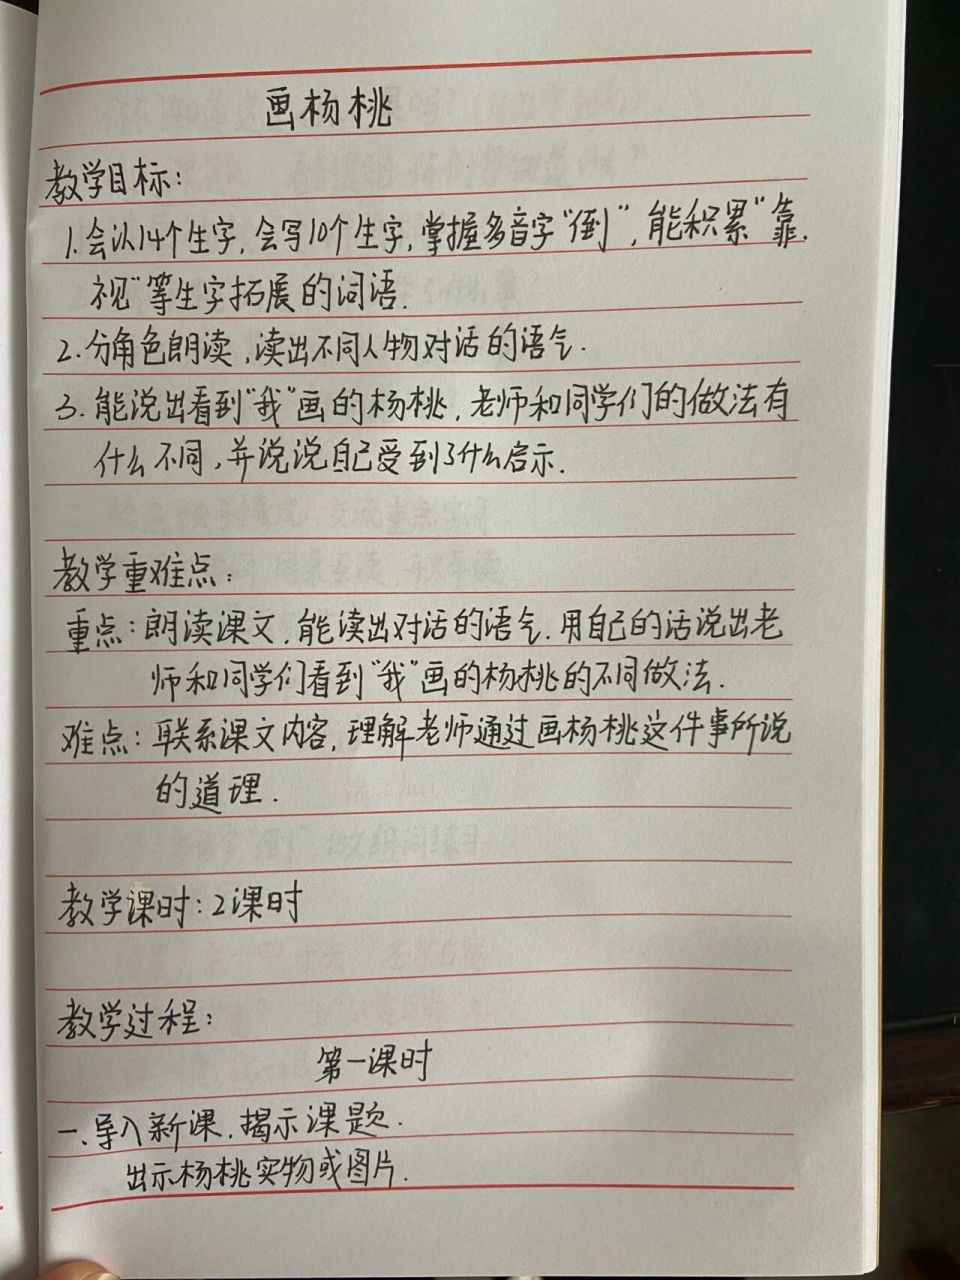 画杨桃
教学目标:
1.会认14个生字,会写10个生字,掌握多音字“倒”,能积累“靠.
视”等生字拓展的词语.
2.分角色朗读,读出不同人物对话的语气.
3.能说出看到“我”画的杨桃,老师和同学们的做法有
什么不同,并说说自己受到了什么启示.
教学重难点:
重点:朗读课文,能读出对话的语气.用自己的话说出老
师和同学们看到“我”画的杨桃的不同做法.
难点:联系课文内容,理解老师通过画杨桃这件事所说
的道理.
教学课时:2课时
教学过程:
第一课时
一、导入新课,揭示课题.
出示杨桃实物或图片.